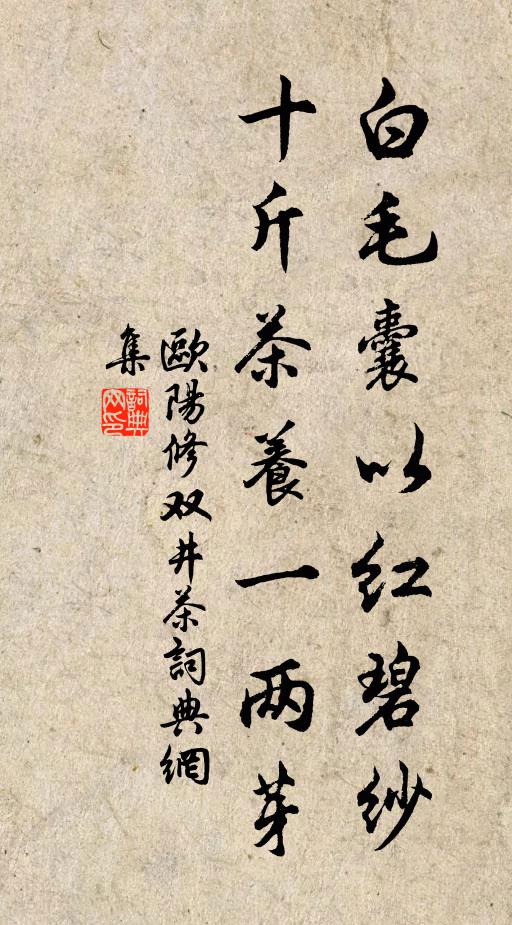 白毛囊以紅碧紗
十斤茶養一两芽
歐陽修双井茶詞典網
集
詞典
网印